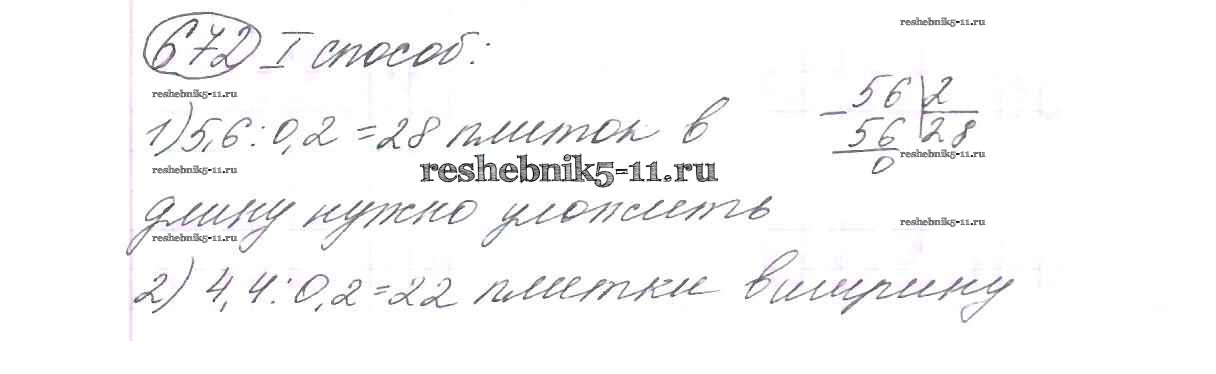 reshebnik5-11.ru
672 I способ:
reshebnik5-11.ru
1) 5,6 : 0,2 = 28 плиток в
56 | 2
- 56 | 28
0
reshebnik5-11.ru
reshebnik5-11.ru
reshebnik5-11.ru
длину нужно уложить
reshebnik5-11.ru
reshebnik5-11.ru
2) 4,4 : 0,2 = 22 плитки в ширину